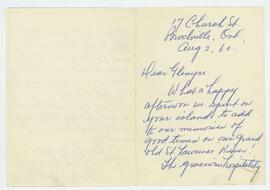 17 Church St.
Brockville, Ont.
Aug 2, 60.
Dear Glenyce.
What a happy
afternoon we spent on
your island to add
to our memories of
good times on our grand
old St Lawrence River!
The gracious hospitality